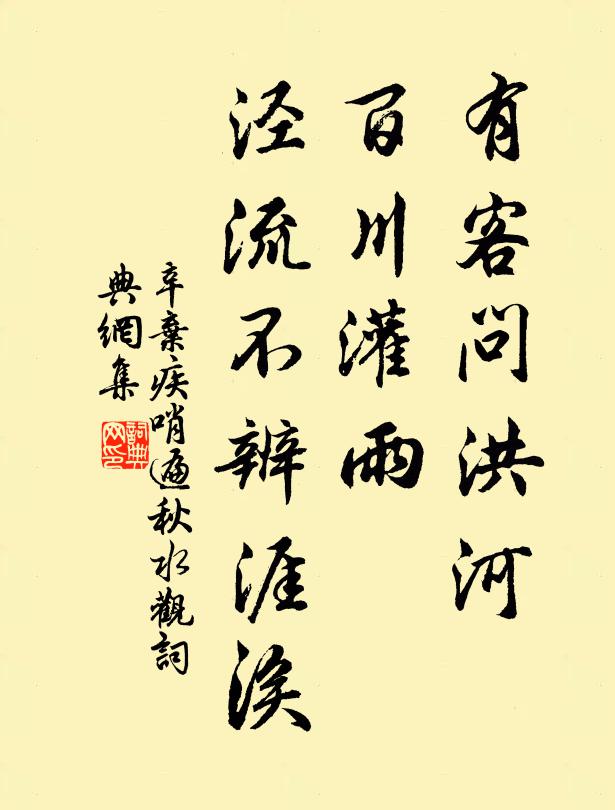 有客问洪河
百川灌雨
泾流不辨涯涘
辛棄疾哨遍秋水觀詞
典網集
詞典
网印